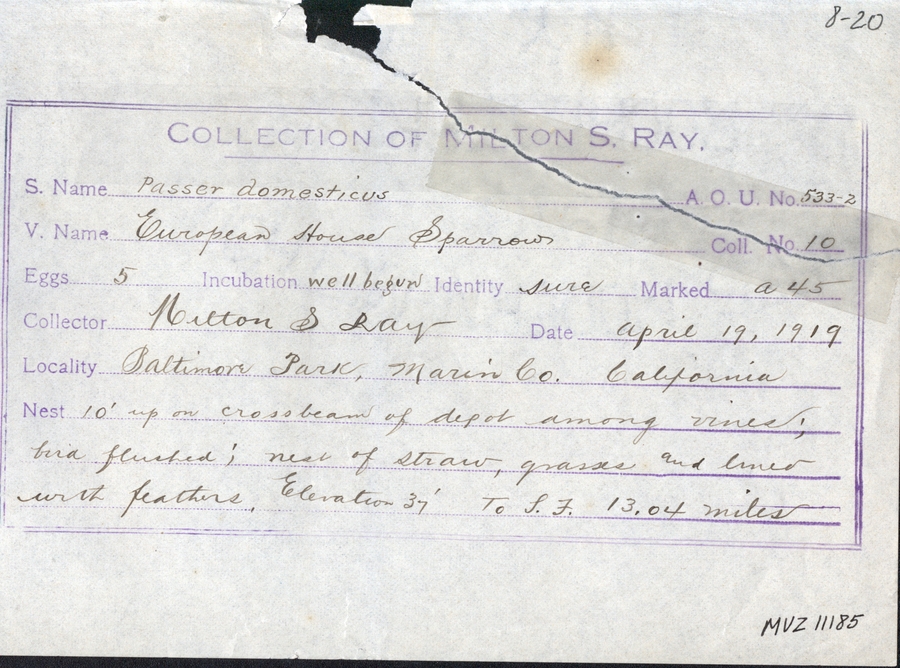 8-20
COLLECTION OF MILTON S. RAY.
S. Name Passer domesticus A. O. U. No. 533-2
V. Name European House Sparrow Coll. No. 10
Eggs 5 Incubation well begun Identity sure Marked a 45
Collector Milton S Ray Date April 19, 1919
Locality Baltimore Park, Marin Co. California
Nest 10' up on crossbeam of depot among vines;
bird flushed; nest of straw, grasses and lined
with feathers. Elevation 37' To S. F. 13.04 miles
MVZ 11185